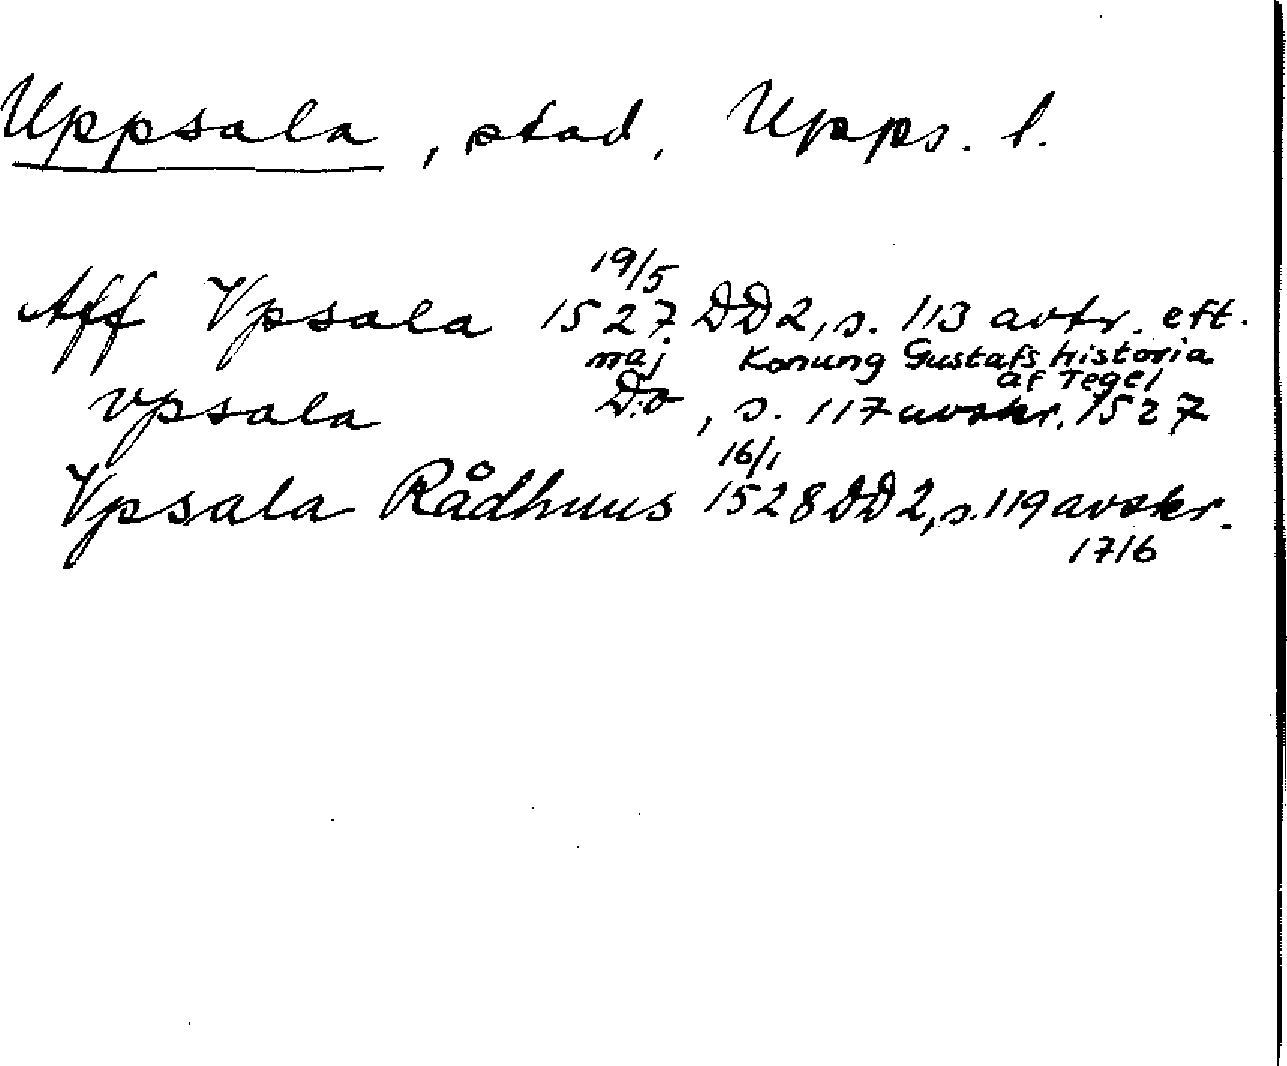 Uppsala, stad, Upps. l.
19/5
Aff Vpsala 1527 DD2, s. 113 avtr. eft.
maj Konung Gustafs historia
af Tegel
vpsala D:o, s. 117 avskr. 1527
16/1
Vpsala Rådhuus 1528 DD2, s. 119 avskr.
1716